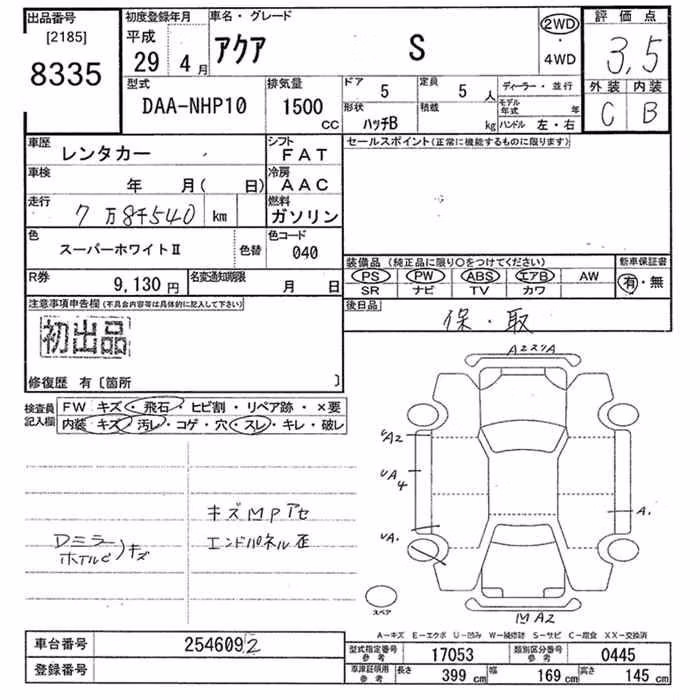 出品番号
[2185]
8335
初度登録年月
平成
29年 4月
車名・グレード
アクア S
2WD
・
4WD
評価点
3,5
外装 内装
C B
型式
DAA-NHP10
排気量
1500
CC
ドア 5
定員 5人
形状 ハッチB
積載 kg
ディーラー・並行
モデル年式 年
ハンドル 左・右
車歴 レンタカー
シフト FAT
車検 年 月( 日)
冷房 AAC
走行 7万8千540 km
燃料 ガソリン
色 スーパーホワイトⅡ
色替
色コード 040
R券 9,130円
名変通知期限 月 日
セールスポイント(正常に機能するものに限ります)
装備品(純正品に限り〇をつけてください)
新車保証書
PS PW ABS エアB AW
有・無
SR ナビ TV カワ
後日品
保・取
注意事項申告欄(不具合内容等は具体的に記入して下さい)
初出品
修復歴 有〔箇所 〕
検査員記入欄
FW キズ・飛石・ヒビ割・リペア跡・×要
内装 キズ・汚レ・コゲ・穴・スレ・キレ・破レ
キズMPアセ
エンドパネル歪
Dミラー
ホイルC)キズ
AエスリA
UA2
UA4
UA.
A.
MA2
スペア
A−キズ E−エクボ U−凹み W−補修跡 S−サビ C−腐食 XX−交換済
車台番号 2546092
登録番号
型式指定番号参考 17053
類別区分番号参考 0445
車庫証明用参考 長さ 399cm 幅 169cm 高さ 145cm